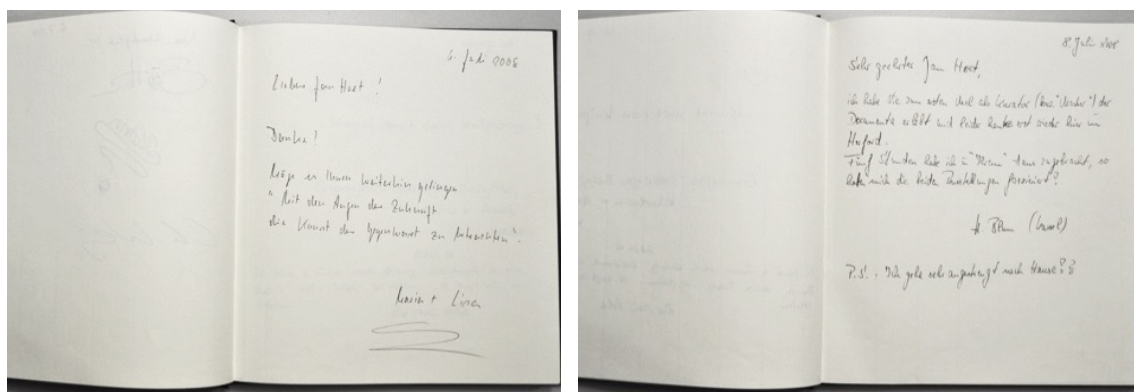 6. Juli 2008
Lieber Jan Hoet!
Danke!
Möge es Ihnen weiterhin gelingen
"Mit den Augen der Zukunft
die Kunst der Gegenwart zu betrachten".
8. Juli 2008
Sehr geehrter Jan Hoet,
ich habe Sie zum ersten Mal als Kurator (bzw. ") der
Documenta erlebt und leider heute erst wieder hier in
Herford.
Fünf Stunden habe ich in "Ihrem" Haus zugebracht, so
haben mich die beiden Ausstellungen fasziniert!
(Kassel)
P.S.: Ich gehe sehr angestrengt nach Hause!